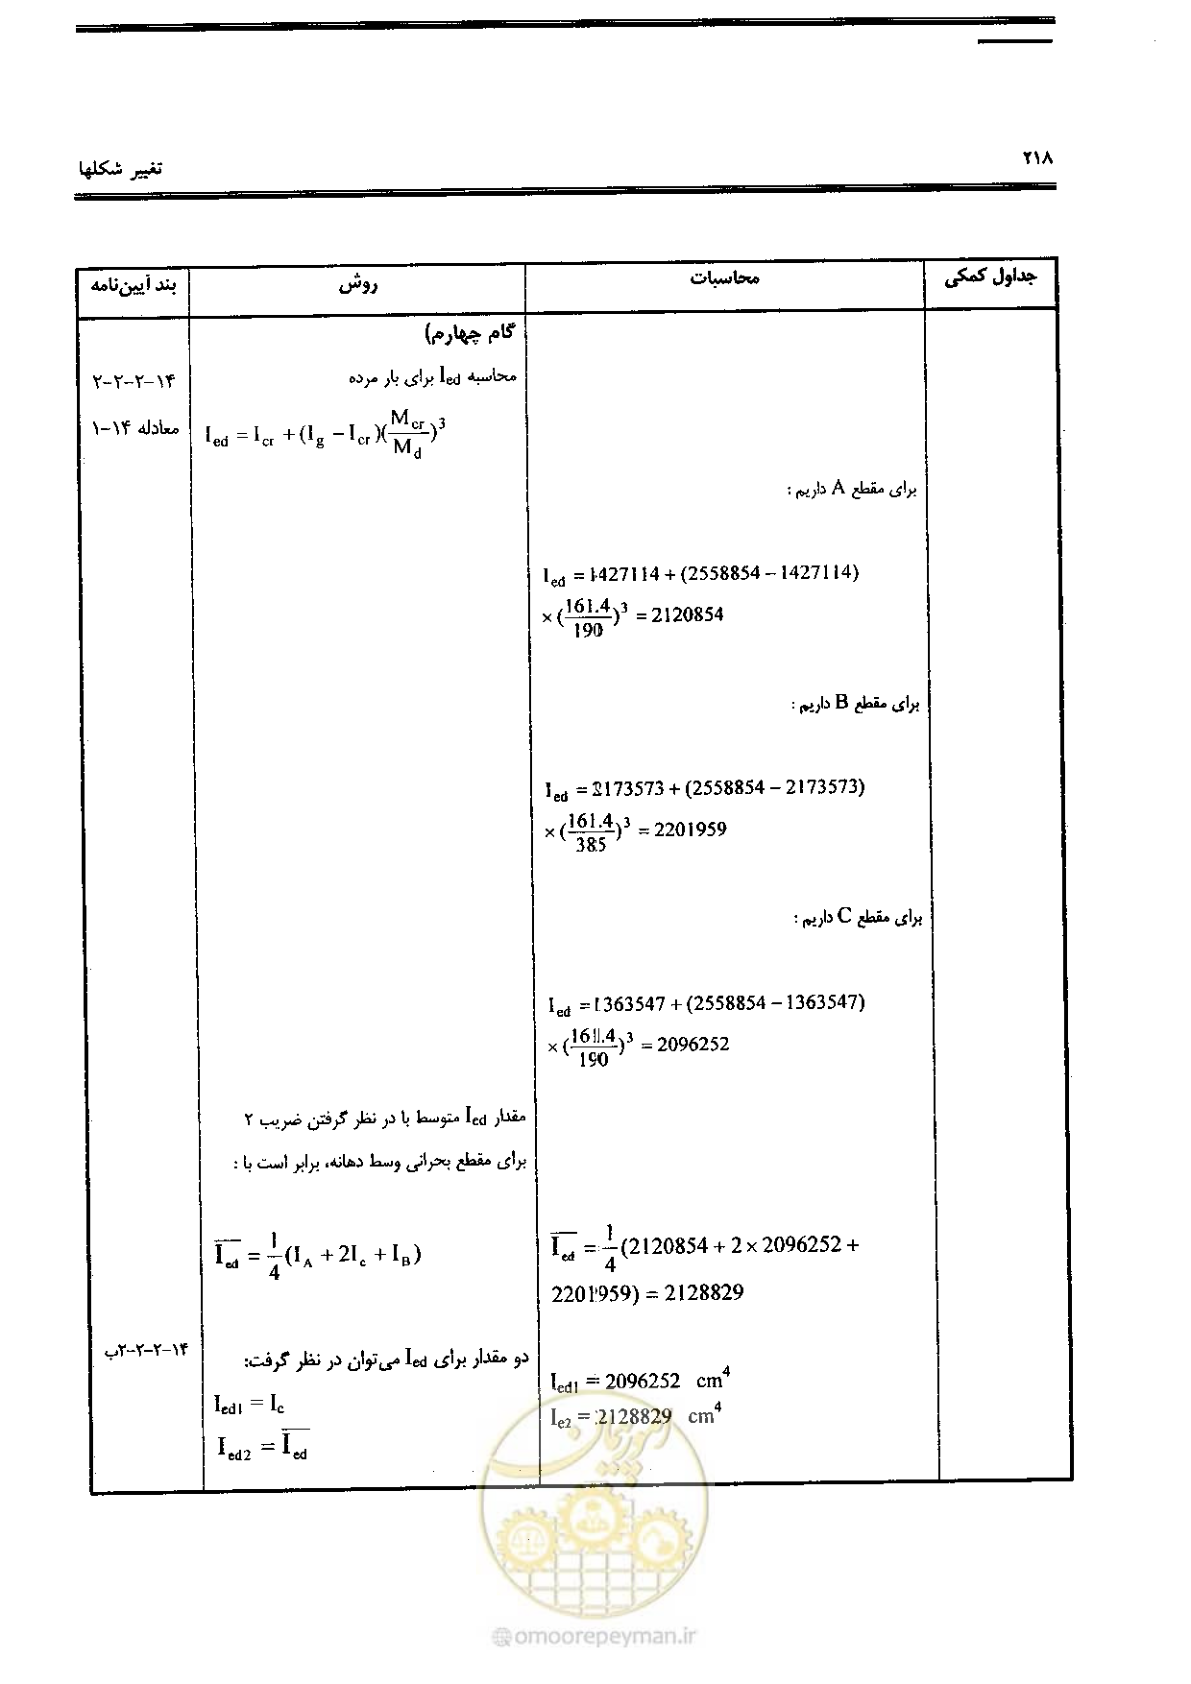 ۲۱۸
تغییر شکلها
جداول کمکی
محاسبات
روش
بند آیین‌نامه
گام چهارم)
محاسبه Ied برای بار مرده
۱۴-۲-۲-۲
I_ed = I_cr + (I_g − I_cr)(M_cr/M_d)^3
معادله ۱۴-۱
برای مقطع A داریم :
I_ed = 1427114 + (2558854 − 1427114)
× (161.4/190)^3 = 2120854
برای مقطع B داریم :
I_ed = 2173573 + (2558854 − 2173573)
× (161.4/385)^3 = 2201959
برای مقطع C داریم :
I_ed = 1363547 + (2558854 − 1363547)
× (161.4/190)^3 = 2096252
مقدار Ied متوسط با در نظر گرفتن ضریب ۲
برای مقطع بحرانی وسط دهانه، برابر است با :
I̅_ed = 1/4 (I_A + 2I_c + I_B)
I̅_ed = 1/4 (2120854 + 2 × 2096252 +
2201959) = 2128829
دو مقدار برای Ied می‌توان در نظر گرفت:
۱۴-۲-۲-۲ب
I_ed1 = I_c
I_ed2 = I̅_ed
I_ed1 = 2096252 cm^4
I_e2 = 2128829 cm^4
امور پیمان
@omoorepeyman.ir